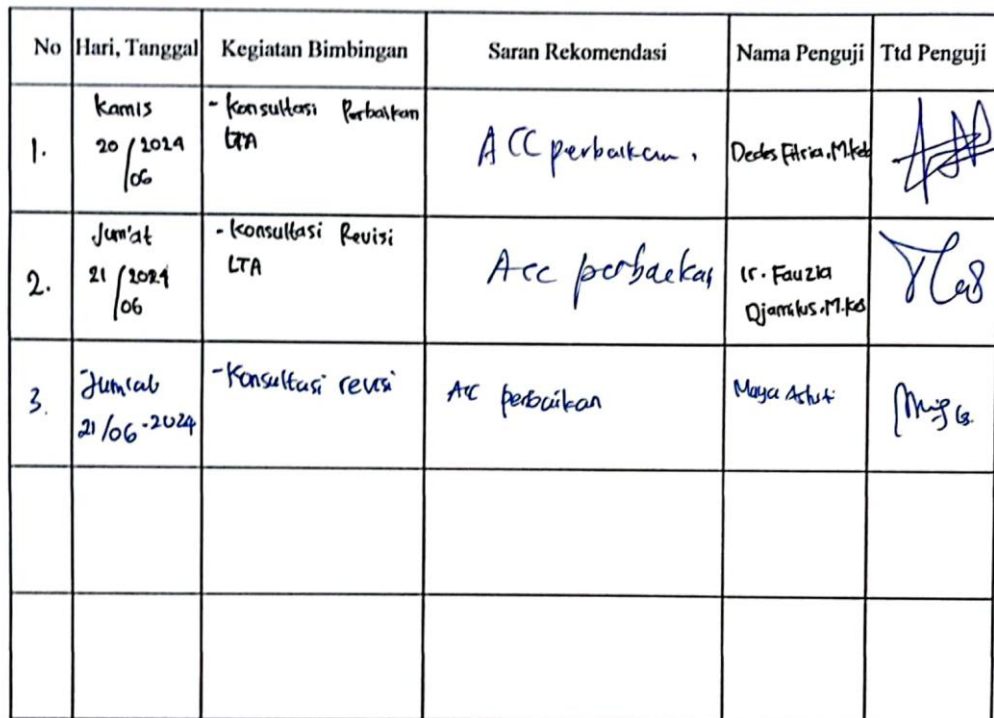 No Hari, Tanggal Kegiatan Bimbingan Saran Rekomendasi Nama Penguji Ttd Penguji
1.
Kamis
20/2024
/06
- Konsultasi Perbaikan
LTA
ACC perbaikan.
Dedes Fitria, M.Keb
2.
Jum'at
21/2024
/06
- Konsultasi Revisi
LTA
Acc perbaekan
Ir. Fauzia
Djamilus, M.Keb
3.
Jumat
21/06-2024
- Konsultasi revisi
Acc perbaikan
Maya Astuti